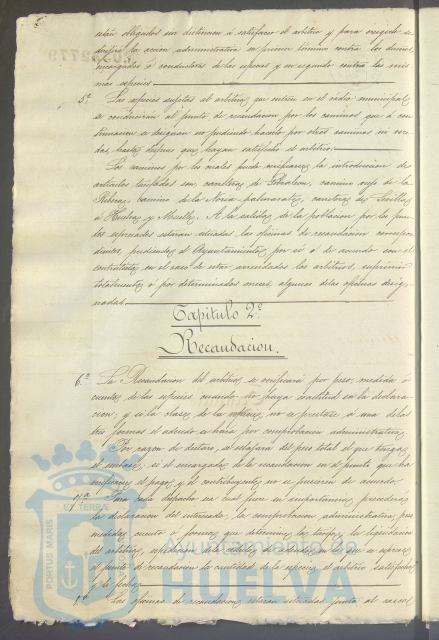 están obligados sin distinción á satisfacer el arbitrio y para exigirlo se
la acción administrativa en primer término contra los dueños,
encargados ó conductores de las especies y en segundo contra las mis-
mas especies
5ª Las especies sujetas al arbitrio que entren en el radio municipal
se conducirán al punto de recaudación por los caminos que á con-
tinuacion se designan no pudiendo hacerlo por otros caminos ni vere-
das, hasta despues que hayan satisfecho el arbitrio
Los caminos por los cuales puede verificarse la introducción de
artículos tarifados son carretera de Gibraleon, camino viejo de la
Ribera, camino de la Noria palmarete, carretera de Sevilla
á Huelva y Muelle. A la salida de la poblacion por los pun-
tos expresados estarán situadas las oficinas de recaudación correspon-
dientes, pudiendo el Ayuntamiento por sí ó de acuerdo con el
contratista en el caso de estar arrendados los arbitrios, suprimir
totalmente ó por determinados meses, algunas de las oficinas desig-
nadas
Capitulo 2º
Recaudacion.
6ª La Recaudacion del arbitrio se verificará por peso, medida ó
cuento de las especies cuando no haya exactitud en la declara-
cion; y si la clase de la misma no se prestase á una de las
tres formas el adeudo se hará por comprobacion administrativa
Por razon de destare, se rebajará del peso total el que tenga
el embase, si el encargado de la recaudacion en el punto que ha
verificarse el pago, y el contribuyente no se pusieran de acuerdo.
7ª Para todo despacho sea cual fuere su importancia, precederá
la declaracion del interesado, la comprobacion administrativa, peso
medida, cuento ó forma que determine la tarifa, la liquidacion
del arbitrio, expidiendose la cedula de adeudo en la que se exprese
el punto de recaudacion la cantidad de la especie, el arbitrio satisfecho
y la fecha
8ª Las oficinas de recaudacion estarán situadas junto al
PORTUS MARIS
ET TERRÆ
Ayuntamiento de
HUELVA